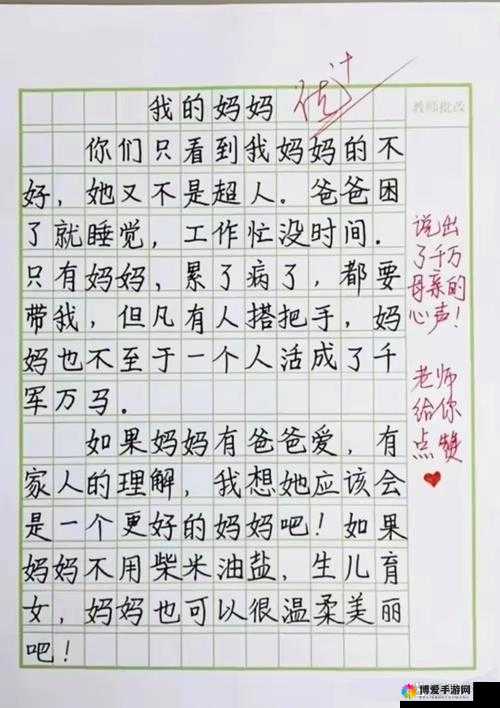 我的妈妈
优+
教师批改
你们只看到我妈妈的不
好，她又不是超人。爸爸困
了就睡觉，工作忙没时间.
只有妈妈，累了病了，都要
带我，但凡有人搭把手，妈
妈也不至于一个人活成了千
军万马.
如果妈妈有爸爸爱，有
家人的理解，我想她应该会
是一个更好的妈妈吧！如果
妈妈不用柴米油盐，生儿育
女，妈妈也可以很温柔美丽
吧！
说出
了千万
母亲的
心声！
老师
给你
点赞
博爱手游网